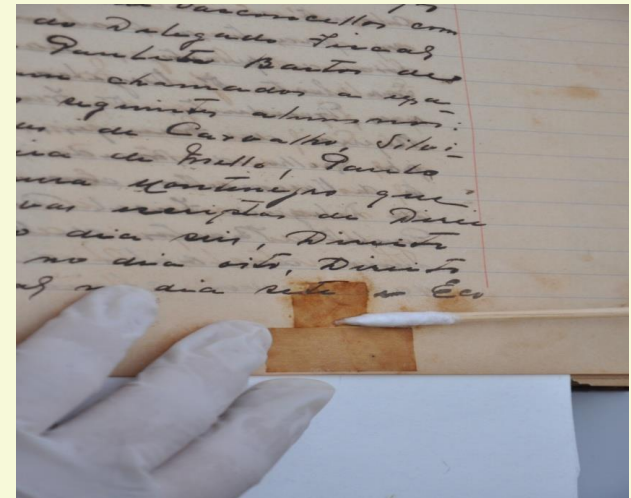 Vasconcellos com
do Delegado Fiscal
Paulista Bastos de
chamados a epa
seguintes alumnos:
de Carvalho, Silvi-
de Mello, Paulo
Montenegro que
vas escriptas de Direi
dia seis, Direito
no dia oito, Direito
dia sete e Eco